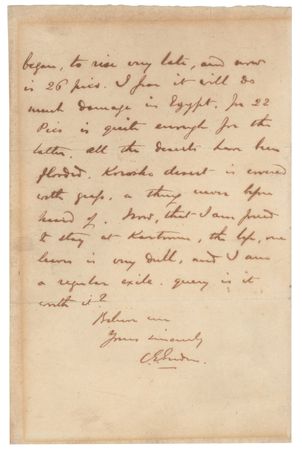 began, to rise very late, and now
is 26 pics. I fear it will do
much damage in Egypt. for 22
Pics is quite enough for the
latter. all the deserts have been
flooded. Korosko desert is covered
with grass, a thing never before
heard of. Now, that I am forced
to stay at Kartoum, the life, one
leads is very dull, and I am
a regular exile. query is it
worth it?
Believe me
Yours sincerely
C. E. Gordon.